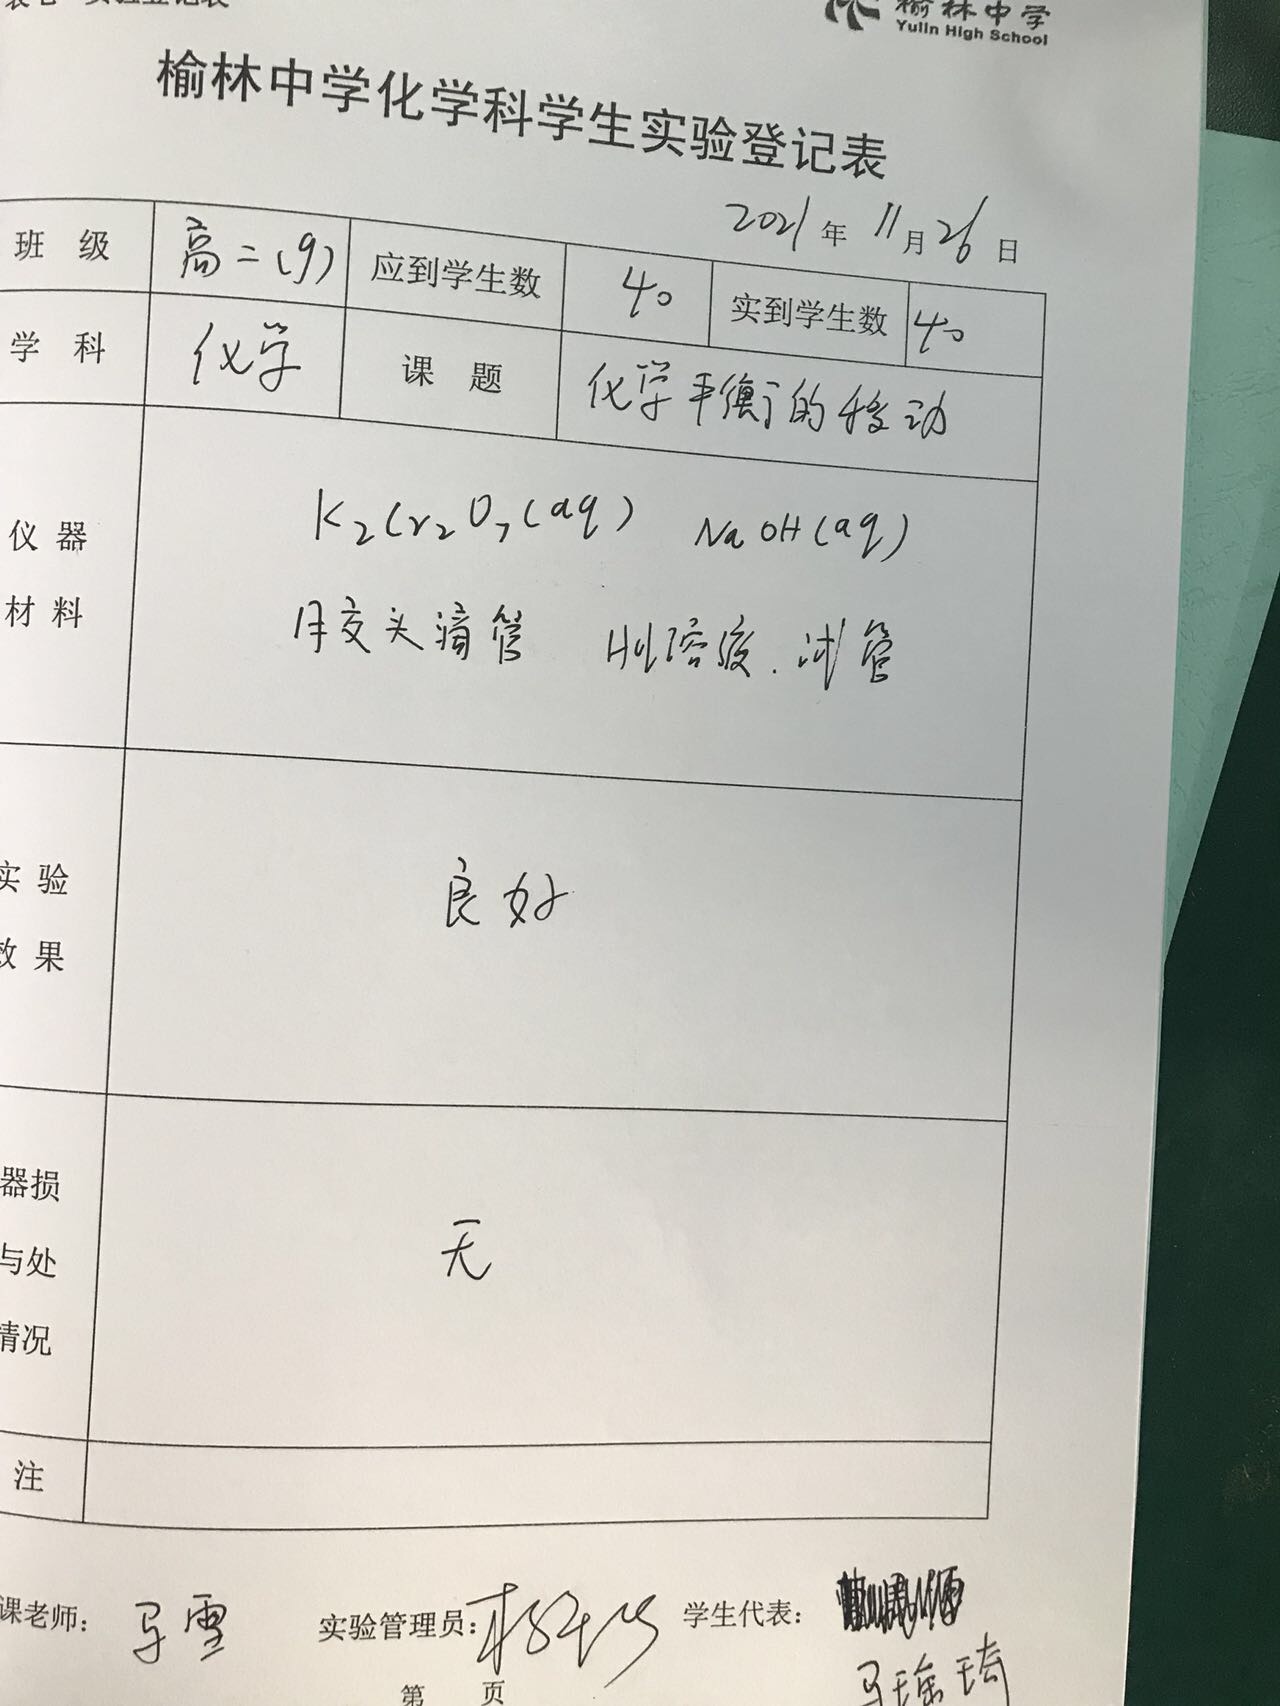 榆林中学
Yulin High School
榆林中学化学科学生实验登记表
2021年11月26日
班级 高二(9) 应到学生数 40 实到学生数 40
学科 化学 课题 化学平衡的移动
仪器
材料
K₂Cr₂O₇(aq) NaOH(aq)
胶头滴管 HCl溶液.试管
实验
效果
良好
器损
与处
情况
无
注
课老师: 马雪 实验管理员: 学生代表:
马瑜琦
第 页